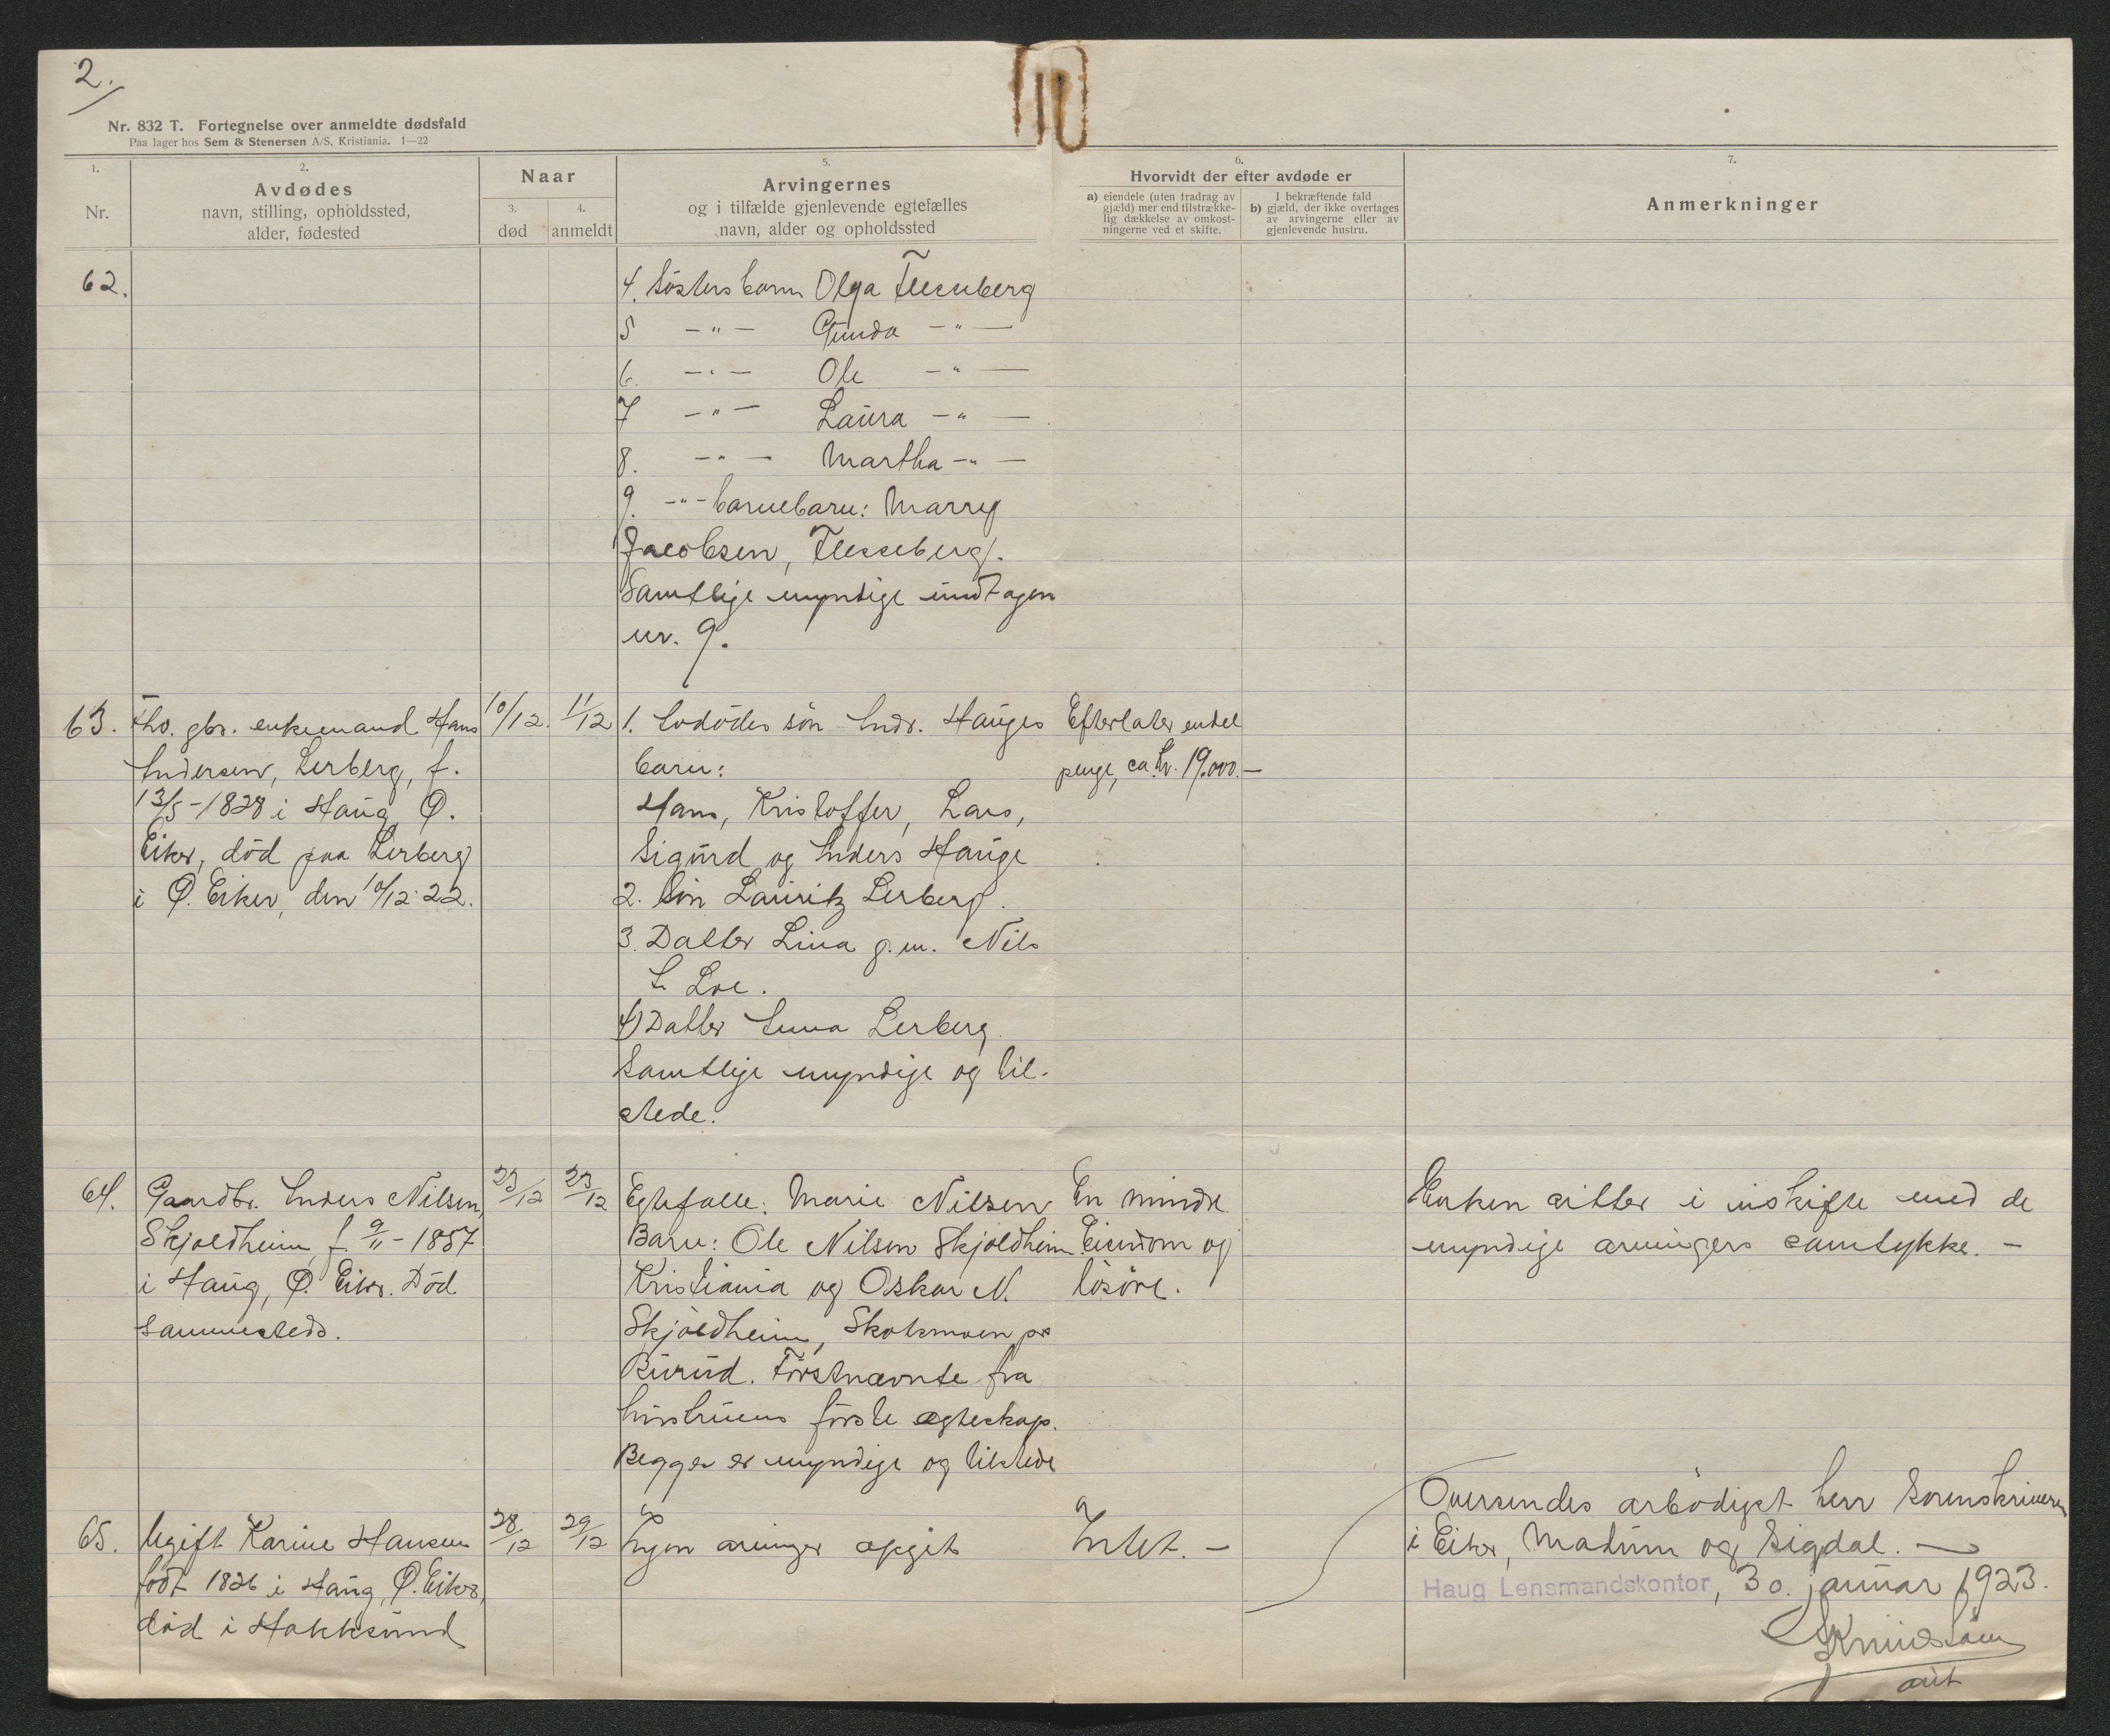 2.
Nr. 832 T. Fortegnelse over anmeldte dødsfald
Paa lager hos Sem & Stenersen A/S, Kristiania. 1—22
1.
Nr.
2.
Avdødes
navn, stilling, opholdssted,
alder, fødested
Naar
3.
død
4.
anmeldt
5.
Arvingernes
og i tilfælde gjenlevende egtefælles
navn, alder og opholdssted
6.
Hvorvidt der efter avdøde er
a) eiendele (uten fradrag av
gjæld) mer end tilstrække-
lig dækkelse av omkost-
ningerne ved et skifte.
I bekræftende fald
b) gjæld, der ikke overtages
av arvingerne eller av
gjenlevende hustru.
7.
Anmerkninger
62.
4. Søsters barn Olga Flesseberg
5 -"- Gunda -"-
6. -"- Ole -"-
7 -"- Laura -"-
8. -"- Martha -"-
9. -"- barnebarn: Marry
Jacobsen, Flesseberg.
Samtlige myndige undtagen
nr. 9.
63.
Fhv. gbr. enkemand Hans
Andersen, Lerberg, f.
13/5-1828 i Haug, Ø.
Eiker, død paa Lerberg
i Ø. Eiker, den 10/12 22.
10/12.
11/12
1. Avdødes søn Andr. Hauges
barn:
Hans, Kristoffer, Lars,
Sigurd og Anders Hauge
2. Søn Lauritz Lerberg.
3. Datter Lina g.m. Nils
A. Loe.
4) Datter Anna Lerberg.
Samtlige myndige og til-
stede.
Efterlater endel
penge, ca. kr. 19.000.-
64.
Gaardbr. Anders Nilsen,
Skjoldheim, f. 9/11-1857
i Haug, Ø. Eiker. Død
sammesteds.
23/12
23/12
Egtefælle: Marie Nilsen
Barn: Ole Nilsen Skjoldheim
Kristiania og Oskar N.
Skjoldheim, Skotsmoen pr
Burud. Førstnævnte fra
hustruens første egteskap.
Begge er myndige og tilstede
En mindre
Eiendom og
løsøre.
Enken sitter i uskifte med de
myndige arvingers samtykke. -
65.
Ugift Karine Hansen
født 1826 i Haug, Ø. Eiker,
død i Hokksund
28/12
29/12
Ingen arvinger opgit
Intet. -
Oversendes ærbødigst herr Sorenskriveren
i Eiker, Modum og Sigdal. -
Haug Lensmandskontor, 30. januar 1923.